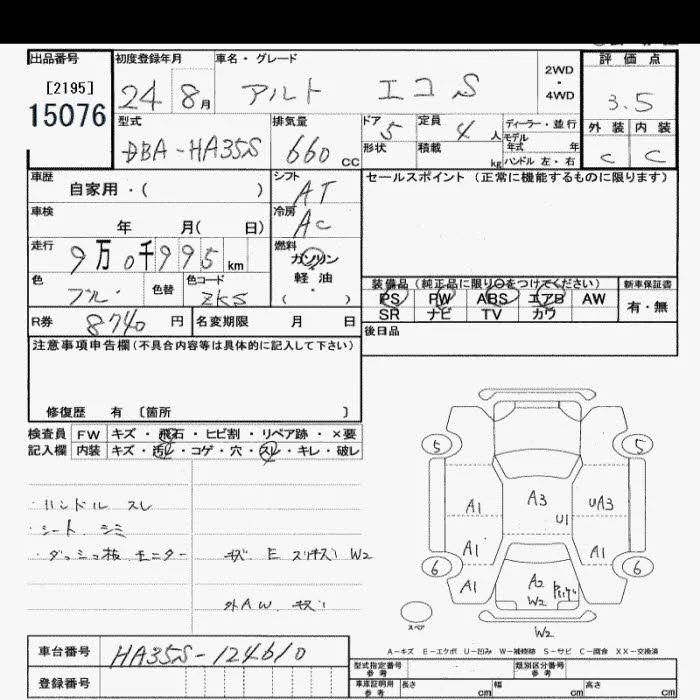 出品番号 初度登録年月 車名・グレード 評価点
[2195] 24 8月 アルト エコS 2WD・4WD 3.5
15076
型式 排気量 ドア 定員 ディーラー・並行 外装 内装
DBA-HA35S 660 CC 5 4人 モデル年式 年 C C
形状 積載 kg ハンドル 左・右
車歴 シフト セールスポイント (正常に機能するものに限ります)
自家用・( ) AT
車検 冷房
年 月( 日) AC
走行 燃料
9万0千995km ガソリン・軽油・( )
色 色替 色コード 装備品 (純正品に限り○をつけてください) 新車保証書
ブルー ZKS PS PW ABS エアB AW 有・無
SR ナビ TV カワ
R券 8740円 名変期限 月 日 後日品
注意事項申告欄(不具合内容等は具体的に記入して下さい)
修復歴 有 〔箇所 〕
検査員 FW キズ・飛石・ヒビ割・リペア跡・×要
記入欄 内装 キズ・汚レ・コゲ・穴・スレ・キレ・破レ
5 5
・ハンドル スレ A1 A3 UA3
・シート シミ U1
・ダッシュ板 モニター キズ E スリキズ W2 A1 A1
6 6
A1 A2
W2
外AW キズ
スペア W2
A-キズ E-エクボ U-凹み W-補修跡 S-サビ C-腐食 XX-交換済
車台番号 HA35S-124610
型式指定番号 参考 類別区分番号 参考
登録番号 車庫証明用 参考 長さ cm 幅 cm 高さ cm